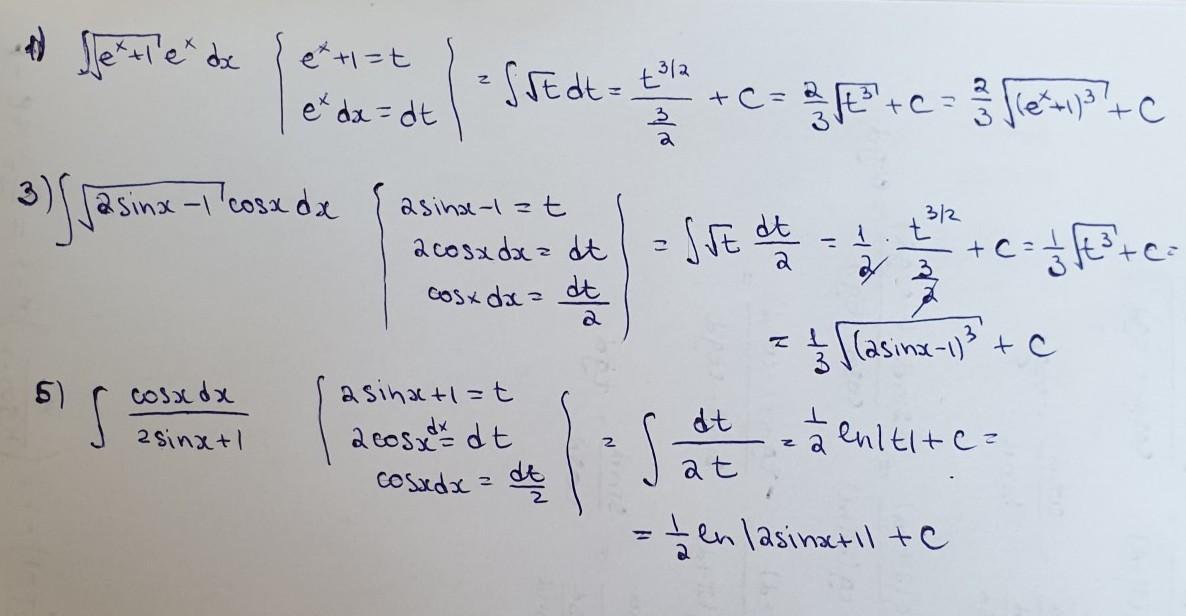 1) ∫√(eˣ+1) eˣ dx { eˣ+1=t eˣ dx = dt } = ∫√t dt = t^(3/2) / (3/2) + C = 2/3 √(t³) + C = 2/3 √((eˣ+1)³) + C
3) ∫√(2sinx-1) cosx dx { 2sinx-1 = t 2cosx dx = dt cosx dx = dt/2 } = ∫√t dt/2 = 1/2 · t^(3/2) / (3/2) + C = 1/3 √(t³) + C =
= 1/3 √((2sinx-1)³) + C
5) ∫ cosx dx / (2sinx+1) { 2sinx+1 = t 2cosx dx = dt cosxdx = dt/2 } = ∫ dt / 2t = 1/2 ln|t| + C =
= 1/2 ln|2sinx+1| + C